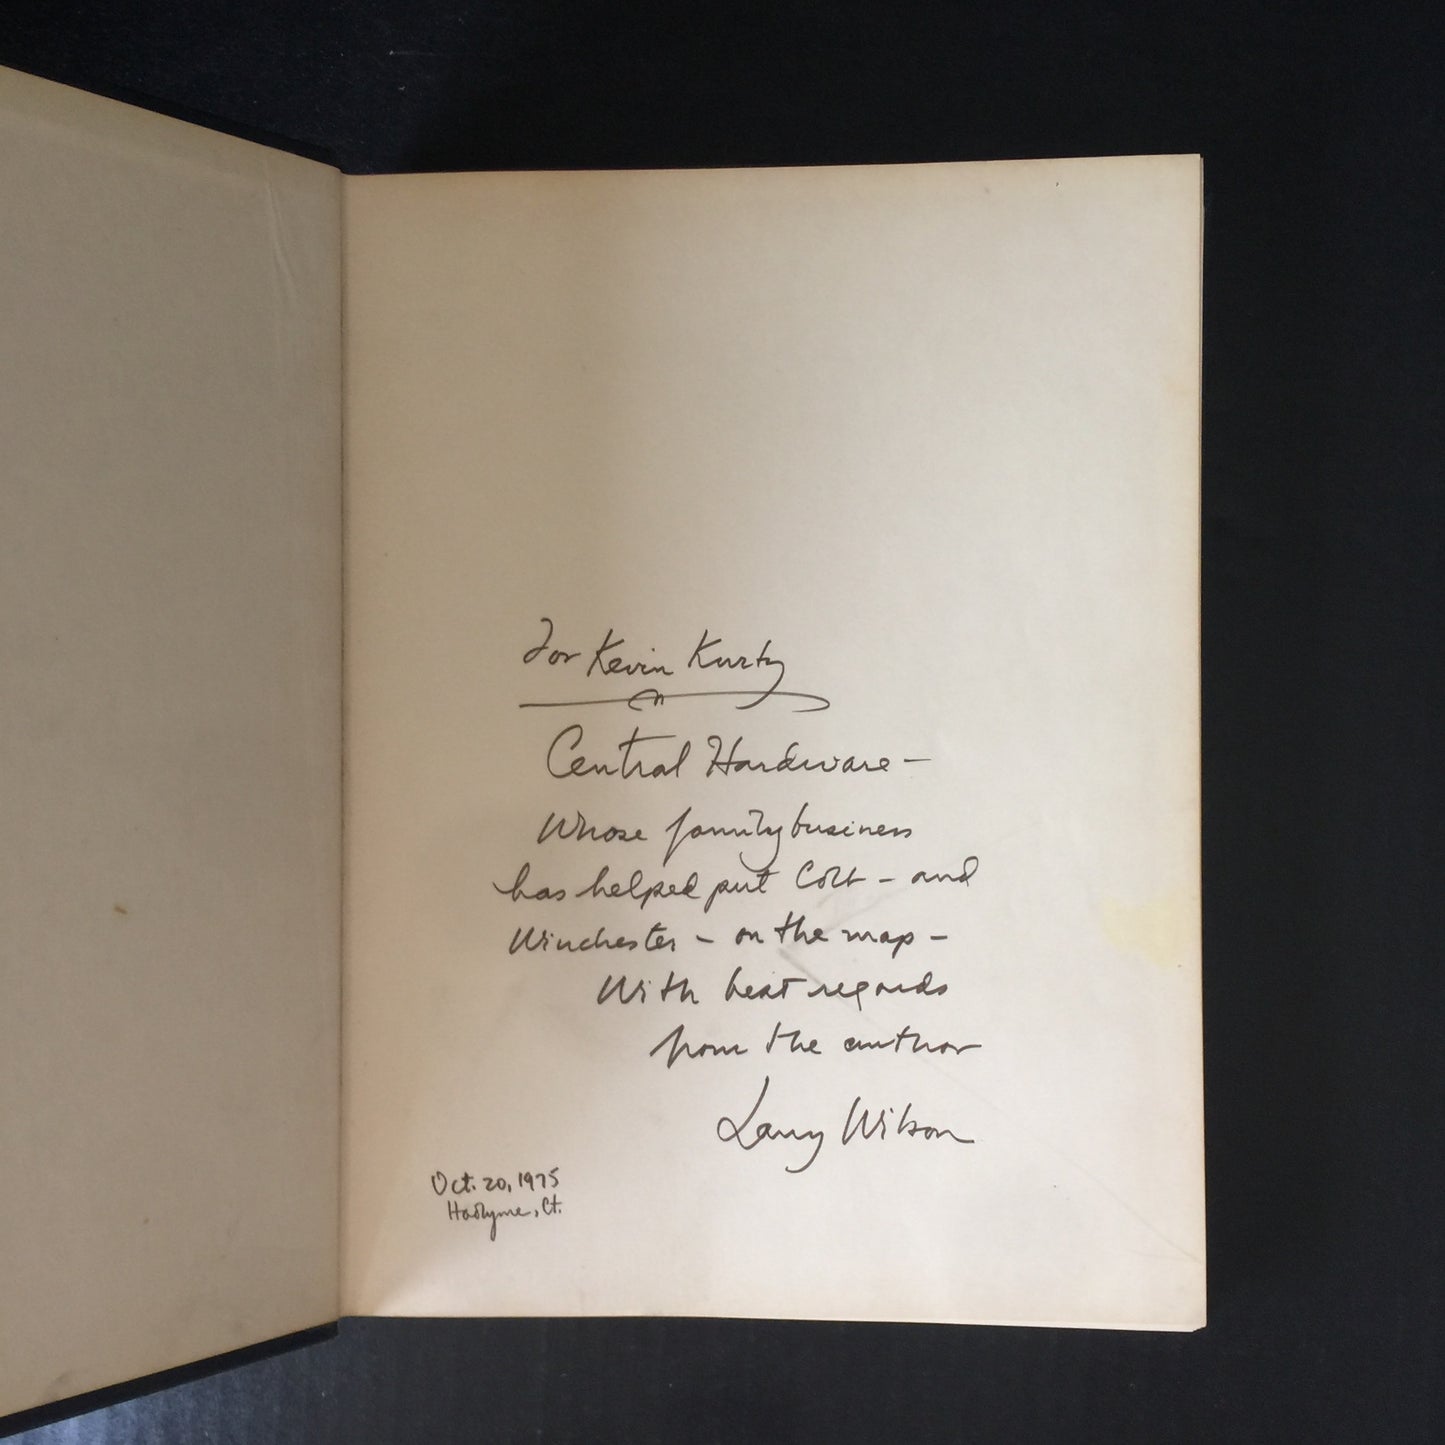 For Kevin Kurtz
Central Hardware –
Whose family business
has helped put Colt – and
Winchester – on the map –
With best regards
from the author
Larry Wilson
Oct. 20, 1975
Hadlyme, Ct.